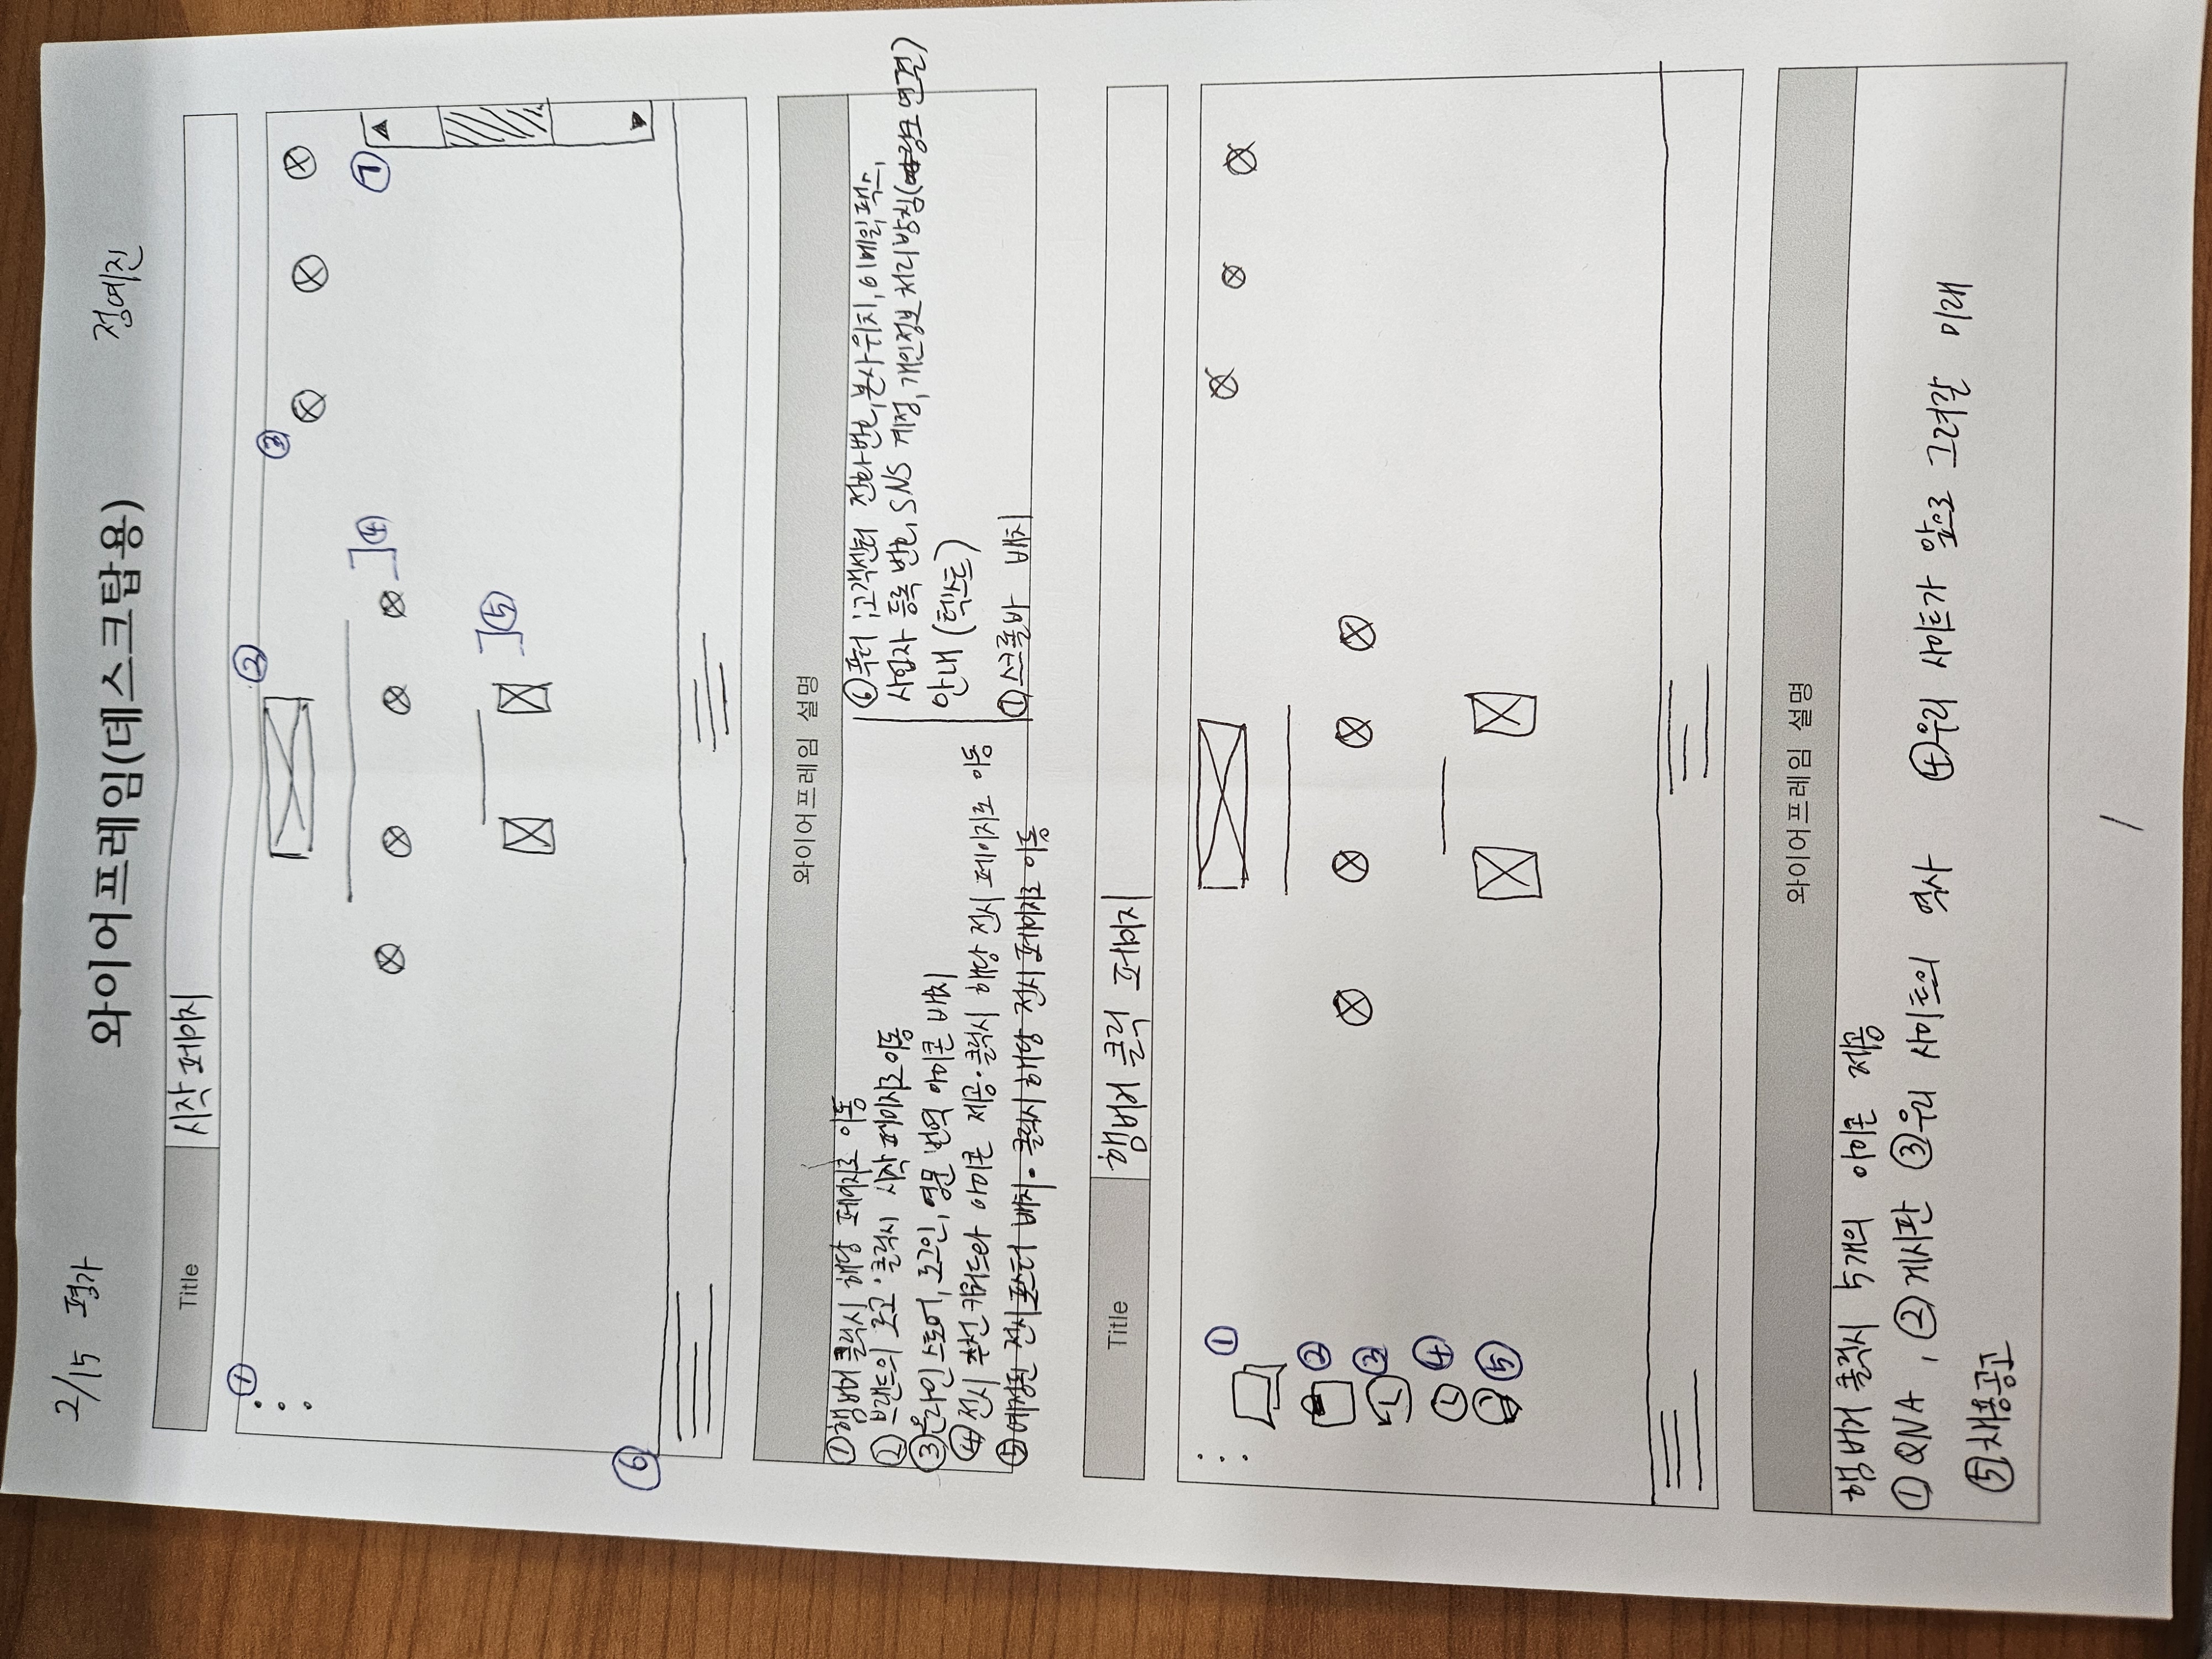 2/15 평가
와이어프레임(데스크탑용)
정예진
Title
시작 페이지
①
②
③
④
⑦
⑤
⑥
와이어프레임 설명
①햄버거 클릭시 해당 페이지로 이동
② 브랜드의 로고·클릭시 시작 페이지로 이동
③온라인 스토어, 로그인, 영문 번역 아이콘 배치
④전시 추천 키워드와 아이콘 제공·클릭시 해당 전시 페이지로 이동
⑤예정된 전시 포스터 배치· 클릭시 해당 전시 페이지로 이동
⑥푸터 ;고객센터 전화번호, 본사 위치, 이메일, 팩스,
사업자 등록 번호, SNS 계정, 개인정보 처리방침(링크 연결)
안내 (텍스트)
⑦스크롤바 배치
Title
햄버거 클릭 페이지
①
②
③
④
⑤
와이어프레임 설명
햄버거 클릭시 5개의 아이콘 제공
① QNA , ②게시판 ③우리 사이트의 역사 ④우리 사이트가 앞으로 그려갈 미래
⑤채용공고
1